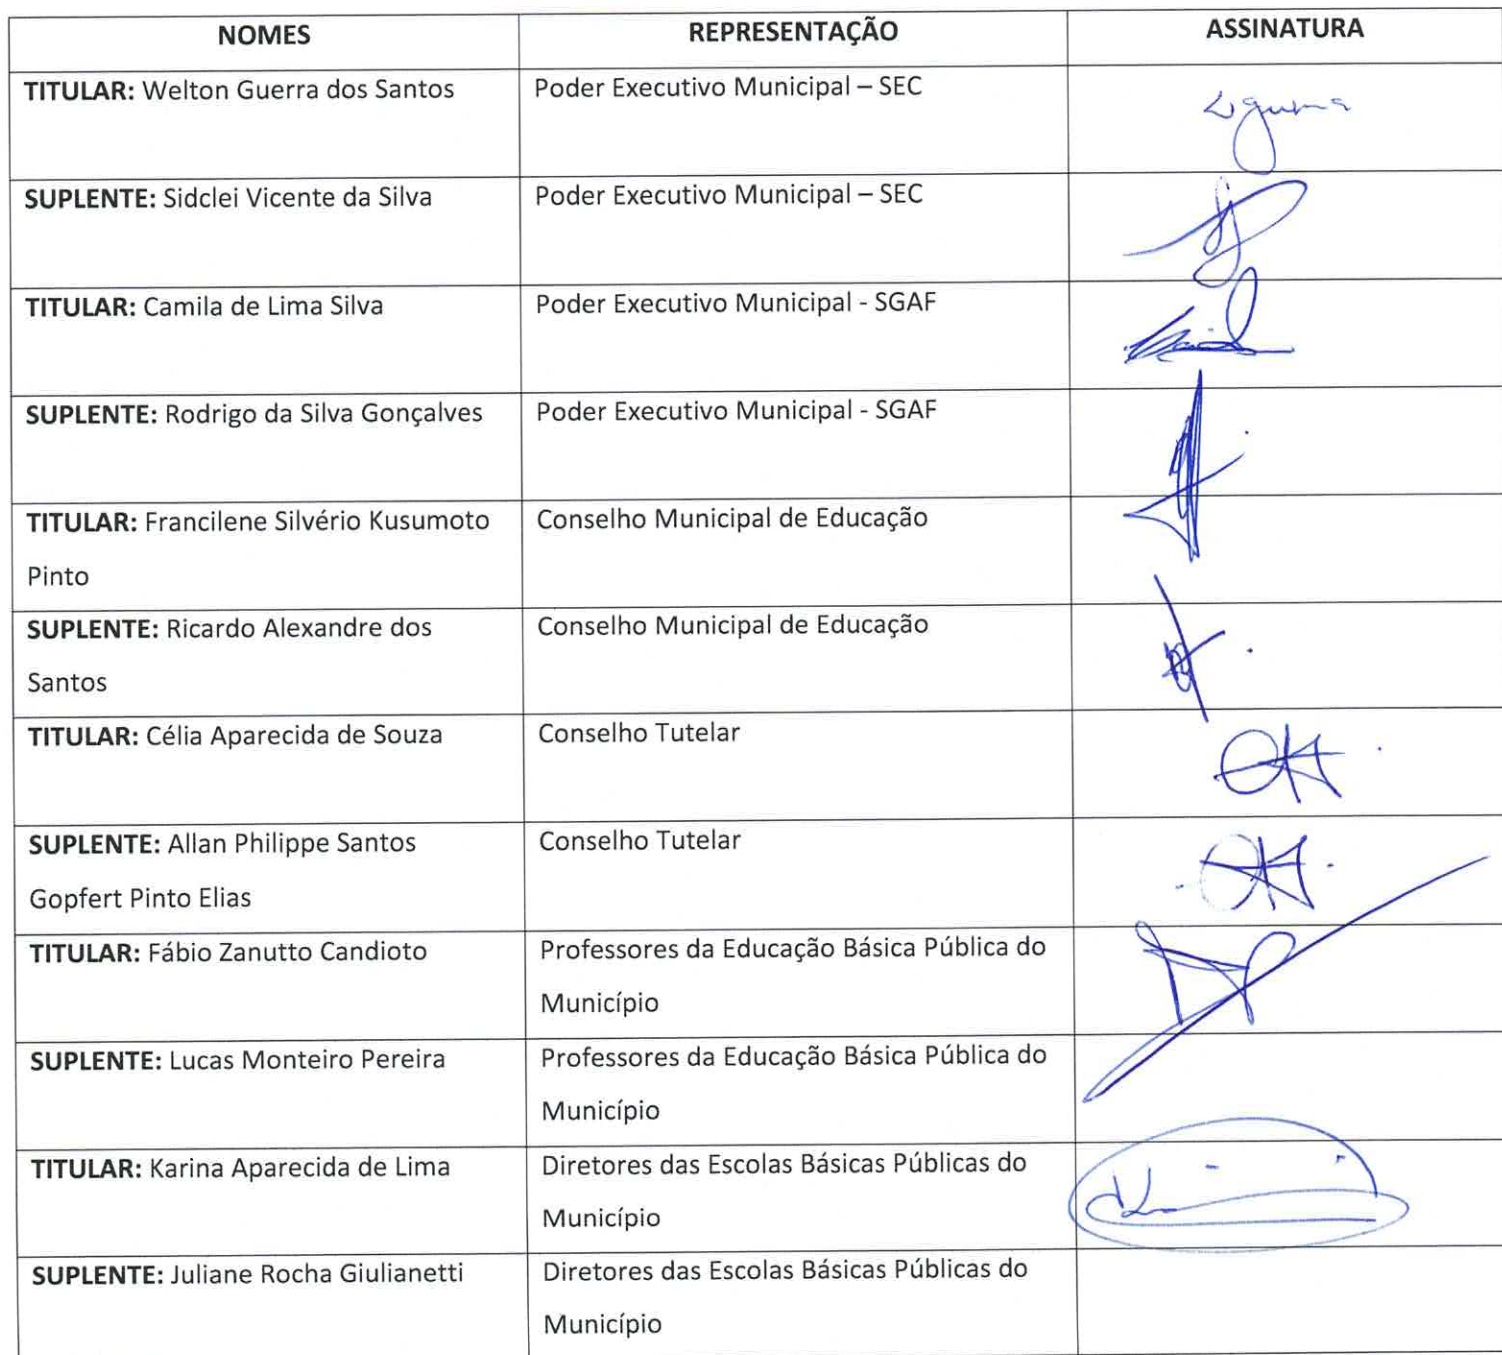 NOMES REPRESENTAÇÃO ASSINATURA
TITULAR: Welton Guerra dos Santos Poder Executivo Municipal – SEC
SUPLENTE: Sidclei Vicente da Silva Poder Executivo Municipal – SEC
TITULAR: Camila de Lima Silva Poder Executivo Municipal - SGAF
SUPLENTE: Rodrigo da Silva Gonçalves Poder Executivo Municipal - SGAF
TITULAR: Francilene Silvério Kusumoto Conselho Municipal de Educação
Pinto
SUPLENTE: Ricardo Alexandre dos Conselho Municipal de Educação
Santos
TITULAR: Célia Aparecida de Souza Conselho Tutelar
SUPLENTE: Allan Philippe Santos Conselho Tutelar
Gopfert Pinto Elias
TITULAR: Fábio Zanutto Candioto Professores da Educação Básica Pública do
Município
SUPLENTE: Lucas Monteiro Pereira Professores da Educação Básica Pública do
Município
TITULAR: Karina Aparecida de Lima Diretores das Escolas Básicas Públicas do
Município
SUPLENTE: Juliane Rocha Giulianetti Diretores das Escolas Básicas Públicas do
Município